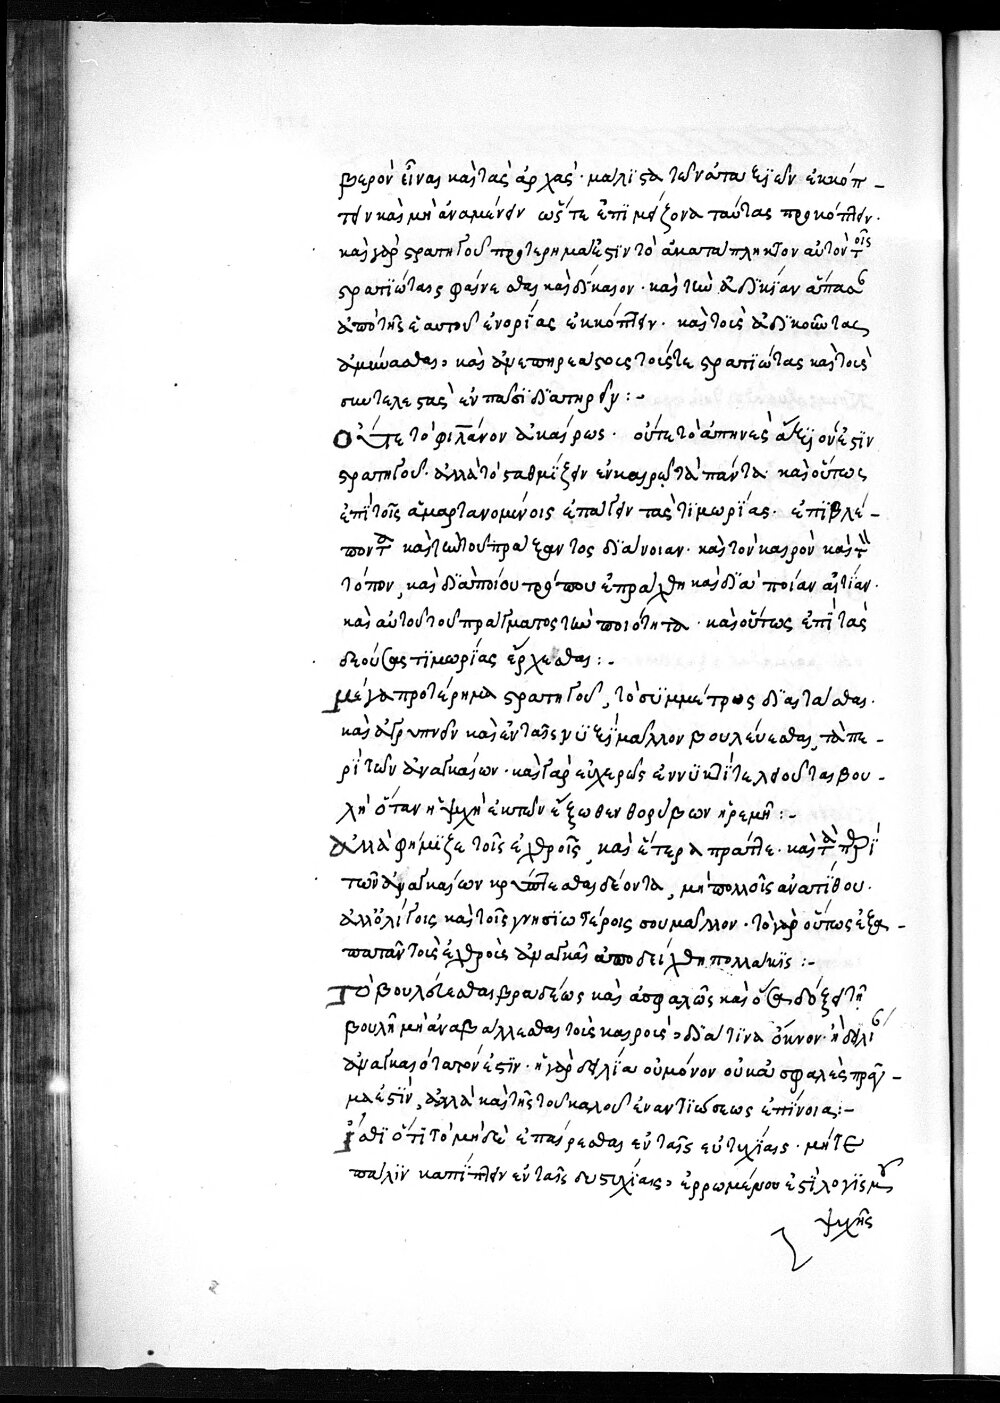 βερὸν εἶναι καὶ τὰς ἀρχὰς· μάλιστα τῶν ἀτάξιων ἐκκόπ-
τειν καὶ μὴ ἀναμένειν ὥστε ἐπὶ μείζονα ταύτας προκόπτειν·
καὶ γὰρ στρατηγοῦ προτέρημά ἐστιν τὸ ἀκατάπληκτον αὐτὸν τοῖς
στρατιώταις φαίνεσθαι καὶ δίκαιον· καὶ τὴν ἀδικίαν ἅπασαν
ἀπὸ τῆς ἑαυτοῦ ἐνορίας ἐκκόπτειν· καὶ τοὺς ἀδικοῦντας
ἀμύνασθαι, καὶ ἀνεπηρεάστους τούς τε στρατιώτας καὶ τοὺς
συντελεστὰς ἐν πᾶσι διατηρεῖν :-
Οὔτε τὸ φιλάνον ἀκαίρως· οὔτε τὸ ἀπηνὲς ἄξιον ἐστὶν
στρατηγοῦ· ἀλλὰ τὸ σταθμίζειν ἐν καιρῷ τὰ πάντα· καὶ οὕτως
ἐπὶ τοῖς ἁμαρτανομένοις ἐπάγειν τὰς τιμωρίας· ἐπιβλέ-
ποντα καὶ τὴν τοῦ πράξαντος διάνοιαν· καὶ τὸν καιρὸν καὶ τὸν
τόπον, καὶ διὰ ποίου τρόπου ἐπράχθη καὶ διὰ ποίαν αἰτίαν·
καὶ αὐτοῦ τοῦ πράγματος τὴν ποιότητα· καὶ οὕτως ἐπὶ τὰς
δεούσας τιμωρίας ἔρχεσθαι :-
Μέγα προτέρημα στρατηγοῦ, τὸ συμμέτρως διαιτᾶσθαι·
καὶ ἀγρυπνεῖν καὶ ἐν ταῖς νυξὶ μᾶλλον βουλεύεσθαι, τὰ πε-
ρὶ τῶν ἀναγκαίων· καὶ γὰρ εὐχερῶς ἐν νυκτὶ τελειοῦται βου-
λὴ ὅταν ἡ ψυχὴ ἐκ τῶν ἔξωθεν θορύβων ἠρεμῇ :-
Ἀλλὰ φήμιζε τοῖς ἐχθροῖς, καὶ ἕτερα πράττε· καὶ τὰ περὶ
τῶν ἀναγκαίων κρύπτεσθαι δέοντα, μὴ πολλοῖς ἀνατίθου·
ἀλλ' ὀλίγοις καὶ τοῖς γνησιωτέροις σου μᾶλλον· τὸ γὰρ οὕτως ἐξα-
πατᾶν τοὺς ἐχθροὺς ἀναγκαῖ ἀπεδείχθη πολλάκις :-
Τὸ βουλεύεσθαι βραδέως καὶ ἀσφαλῶς καὶ ὅσα δόξει τῇ
βουλῇ μὴ ἀναβάλλεσθαι τοὺς καιροὺς, διά τινα ὄκνον· ἢ δειλίαν
ἀναγκαιότατον ἐστίν· ἡ γὰρ δειλία οὐ μόνον οὐκ ἀσφαλὲς πρᾶγ-
μα ἐστὶν, ἀλλὰ καὶ τῆς τοῦ καλοῦ ἐναντιώσεως ἐπίνοια :-
Ἴσθι ὅτι τὸ μηδὲ ἐπαίρεσθαι ἐν ταῖς εὐτυχίαις· μήτε
πάλιν καταπίπτειν ἐν ταῖς δυστυχίαις, ἐρρωμένου ἐστὶ λογισμοῦ
ψυχῆς